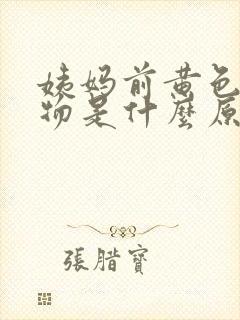 姨妈前黄色
物是什麼原
張腊寶